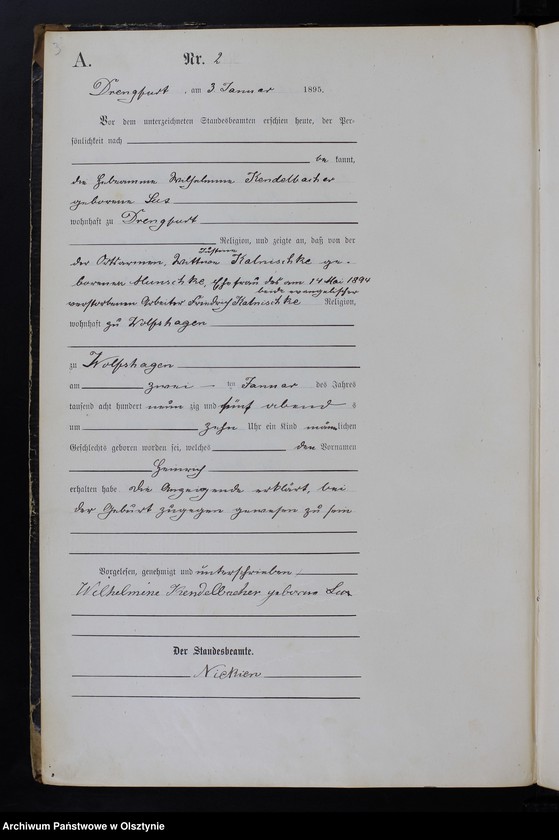 A. Nr. 2
Drengfurt, am 3. Januar 1895.
Vor dem unterzeichneten Standesbeamten erschien heute, der Per-
sönlichkeit nach
be kannt,
die Hebeamme Wilhelmine Kendelbacher
geborene Sus
wohnhaft zu Drengfurt
Religion, und zeigte an, daß von der
Justine
der Ortsarmen, Wittwe Kalnischke ge-
borenen Munschke, Ehefrau des am 14 Mai 1894
beide evangelischer
verstorbenen Arbeiter Friedrich Kalnischke Religion,
wohnhaft zu Wolfshagen
zu Wolfshagen
am zwei ten Januar des Jahres
tausend acht hundert neun zig und fünf abend s
um zehn Uhr ein Kind männlichen
Geschlechts geboren worden sei, welches den Vornamen
Heinrich
erhalten habe. Die Anzeigende erklärt, bei
der Geburt zugegen gewesen zu sein
Vorgelesen, genehmigt und unterschrieben
Wilhelmine Kendelbacher geborne Sus
Der Standesbeamte.
Archiwum Państwowe w Olsztynie